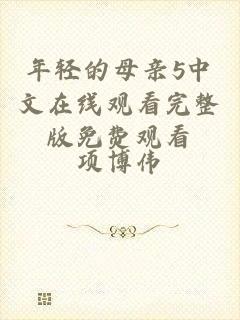 年轻的母亲5中
文在线观看完整
版免费观看
项博伟